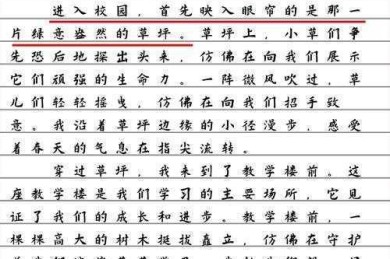 进入校园，首先映入眼帘的是那一
片绿意盎然的草坪。草坪上，小草们争
先恐后地探出头来，仿佛在向我们展示
它们顽强的生命力。一阵微风吹过，草
儿们轻轻摇曳，仿佛在向我们招手致
意。我沿着草坪边缘的小径漫步，感受
着春天的气息在指尖流转。
穿过草坪，我来到了教学楼前。这
座教学楼是我们学习的主要场所，它见
证了我们的成长和进步。教学楼前，一
棵棵高大的树木挺拔矗立，仿佛在守护